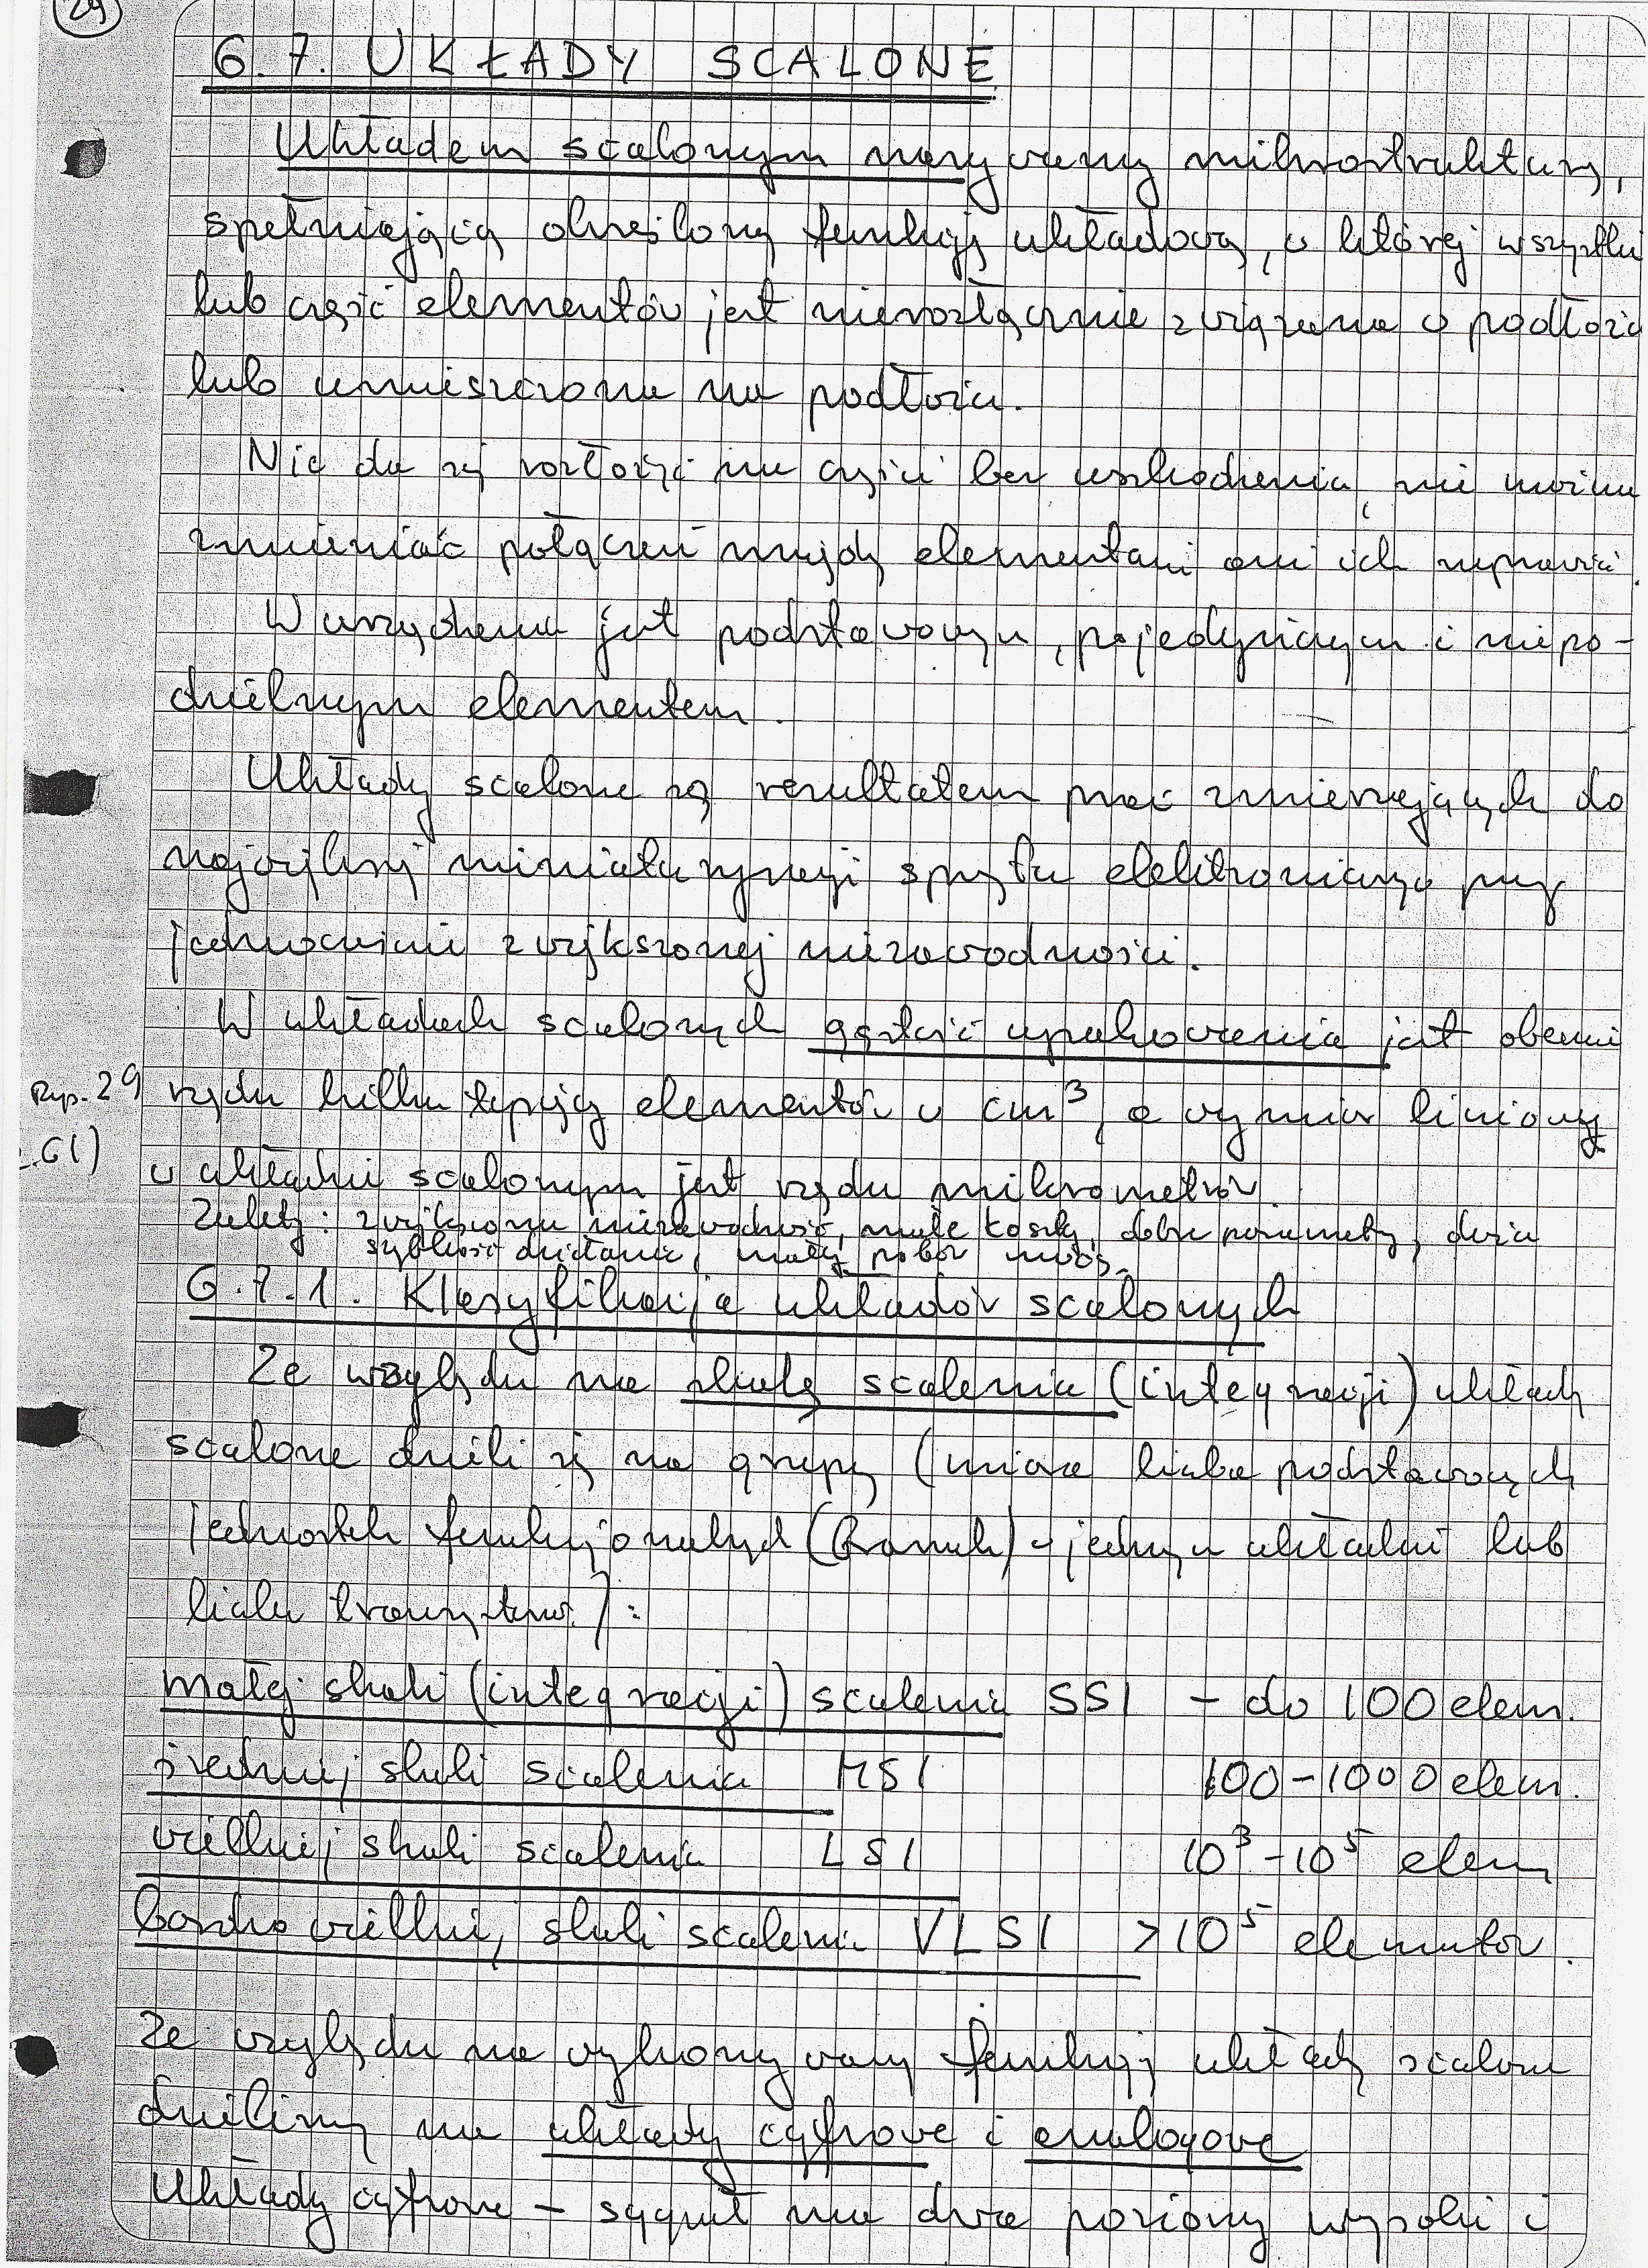 29
6.7. UKŁADY SCALONE
Układem scalonym nazywamy mikrostrukturę,
spełniającą określoną funkcję układową, w której wszystkie
lub część elementów jest nierozłącznie związana w podłożu
lub umieszczona na podłożu.
Nie da się rozłożyć na części bez uszkodzenia, nie można
zmieniać połączeń między elementami ani ich naprawić.
W urządzeniu jest podstawowym, pojedynczym i niepo-
dzielnym elementem.
Układy scalone są rezultatem prac zmierzających do
największej miniaturyzacji sprzętu elektronicznego przy
jednocześnie zwiększonej niezawodności.
W układach scalonych gęstość upakowania jest obecnie
Rys. 29 rzędu kilku tysięcy elementów w cm³, a wymiar liniowy
61) w układzie scalonym jest rzędu mikrometrów.
Zalety: zwiększona niezawodność, małe koszty, dobre parametry, duża
szybkość działania, mały pobór mocy.
6.7.1. Klasyfikacja układów scalonych
Ze względu na skalę scalenia (integracji) układy
scalone dzieli się na grupy (miara liczba podstawowych
jednostek funkcjonalnych (bramek) w jednym układzie lub
liczba tranzystorów):
małej skali (integracji) scalenia SSI - do 100 elem.
średniej skali scalenia MSI 100-1000 elem.
wielkiej skali scalenia LSI 10³-10⁵ elem
bardzo wielkiej skali scalenia VLSI >10⁵ elementów.
Ze względu na wykonywaną funkcję układy scalone
dzielimy na układy cyfrowe i analogowe
Układy cyfrowe - sygnał ma dwa poziomy wysoki i